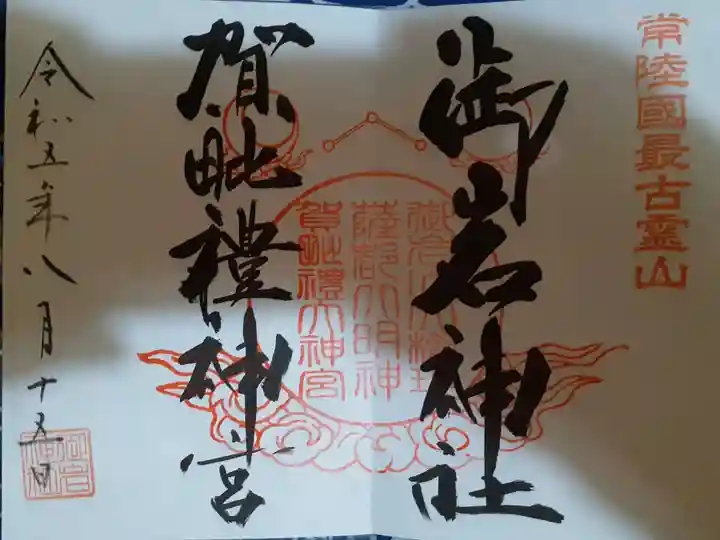 常陸國最古霊山
御岩神社
賀毗禮神宮
薩都大明神
賀毗禮大神宮
令和五年八月十五日